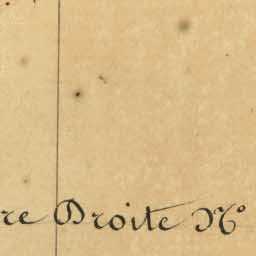 re Droite N°